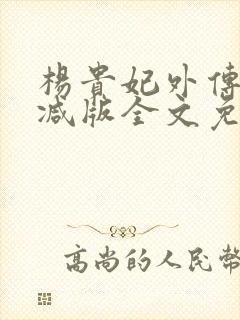 楊貴妃外傳
减版全文免
高尚的人民幣